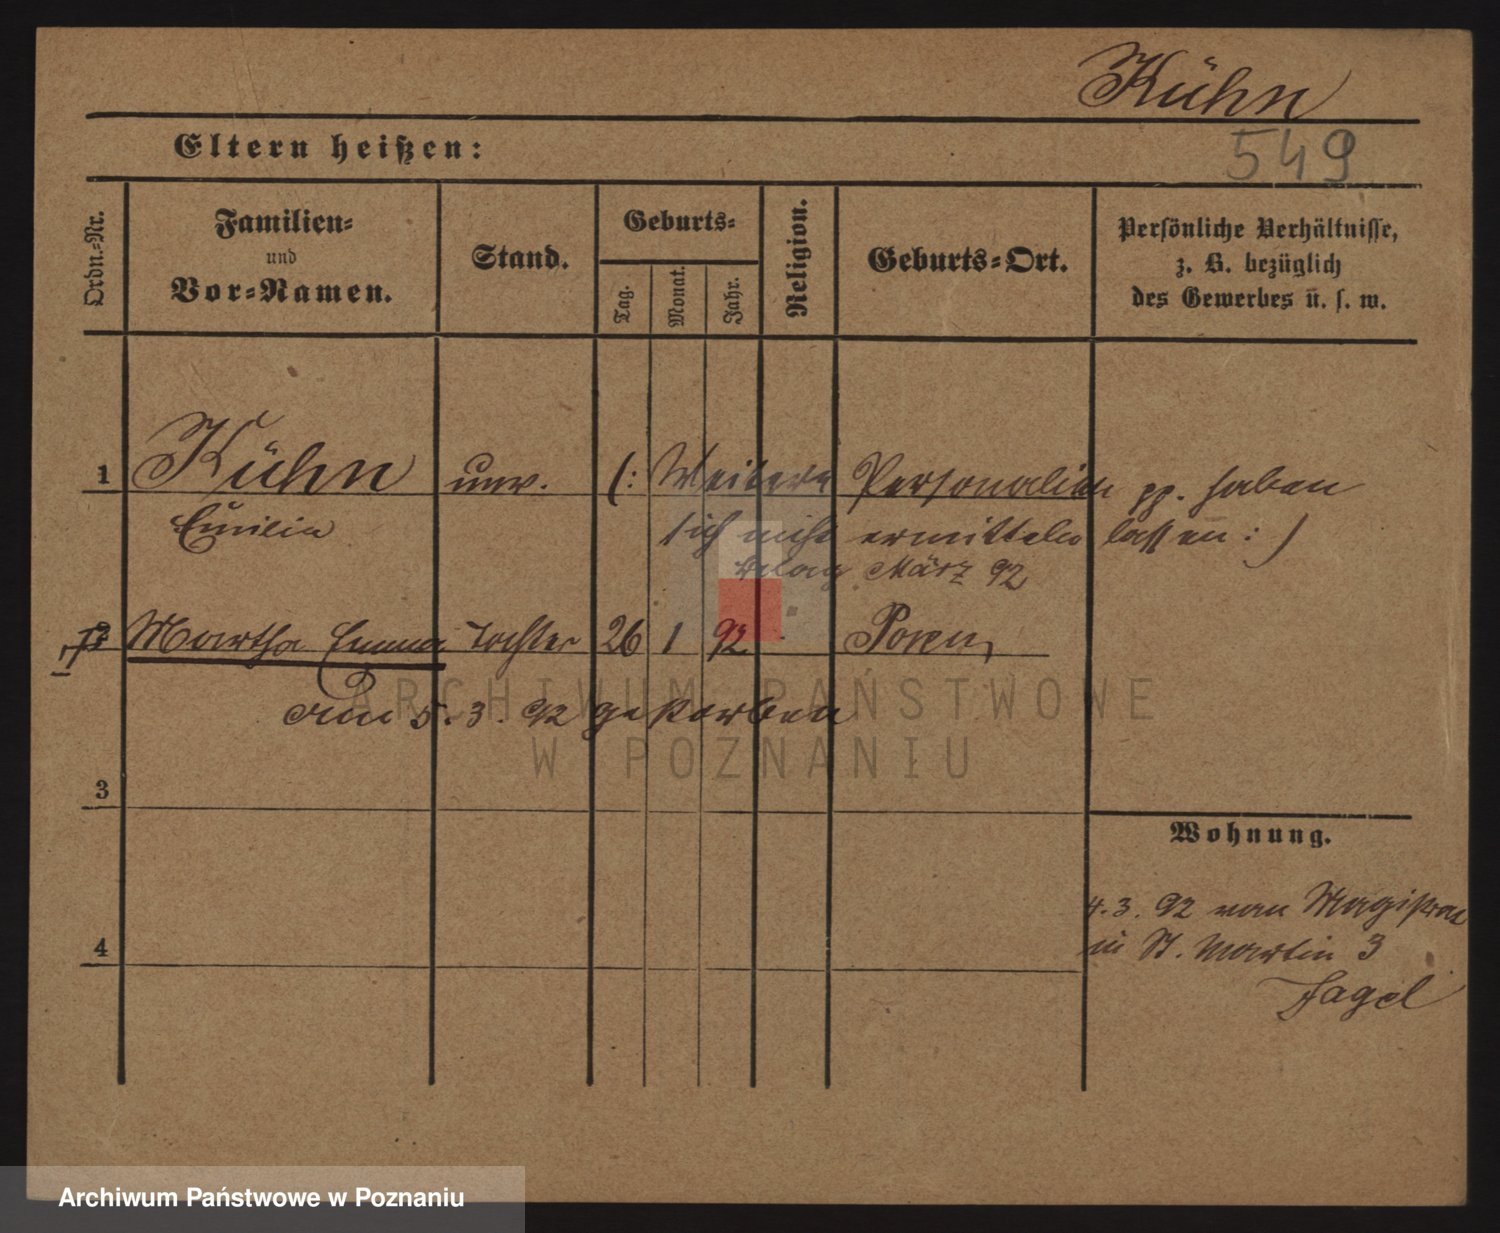 Kühn
549
Eltern heißen:
Ordn.-Nr.
Familien-
und
Vor-Namen.
Stand.
Geburts-
Tag.
Monat.
Jahr.
Religion.
Geburts-Ort.
Persönliche Verhältnisse,
z. B. bezüglich
des Gewerbes u. s. w.
1 Kühn unv. (: Weitere Personalien pp. haben
Emilie sich nicht ermitteln lassen :)
März 92
2 Martha Emma Tochter 26 1 92. Posen
am 5. 3. 92 gestorben
ARCHIWUM PAŃSTWOWE
W POZNANIU
3
Wohnung.
4.3. 92 von Magistrat
in St. Martin 3
4
Archiwum Państwowe w Poznaniu